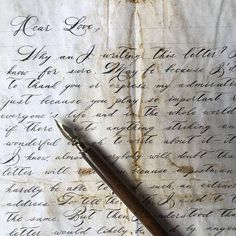 Dear Love,
Why am I writing this letter? I
know for sure. May be because I'd
to thank you or express my admiratio
just because you play so important
everyone's life and in the whole world
if there is anything striking an
wonderful to write about it
I know, almost everybody will doubt that
letter will because
hardly be able to such, an extrao
address. To tell the I do
the same. But then I understood tha
letter would likely be by an